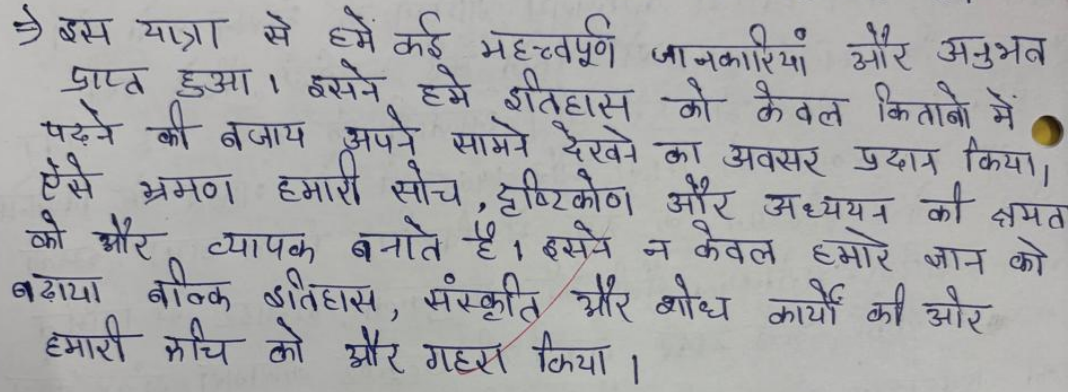 ⇒ इस यात्रा से हमें कई महत्त्वपूर्ण जानकारियां और अनुभव
प्राप्त हुआ। इसने हमे इतिहास को केवल किताबो में
पढ़ने की बजाय अपने सामने देखने का अवसर प्रदान किया।
ऐसे भ्रमण हमारी सोच, दृष्टिकोण और अध्ययन की क्षमत
को और व्यापक बनाते है। इसने न केवल हमारे ज्ञान को
बढ़ाया बल्कि इतिहास, संस्कृति और शोध कार्यों की ओर
हमारी रूचि को और गहरा किया।